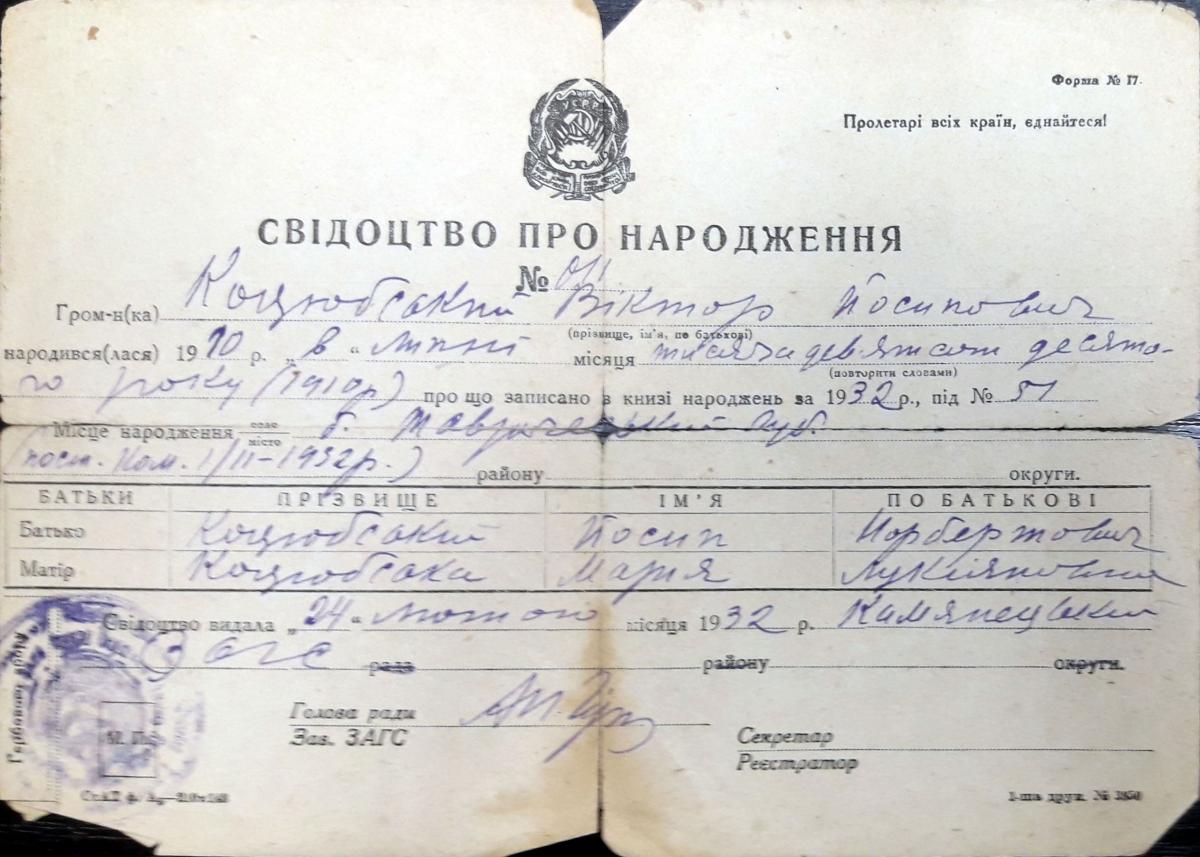 Форма № 17.
Пролетарі всіх країн, єднайтеся!
УСРР
СВІДОЦТВО ПРО НАРОДЖЕННЯ
№
Гром-н(ка) Коцюбський Віктор Йосипович
(прізвище, ім'я, по батькові)
народився(лася) 1910 р. „в“ липні місяця тисяча девятсот десято-
(повторити словами)
го року (1910р) про що записано в книзі народжень за 1932 р., під № 51
Місце народження село місто б. Таврический губ.
(пост. Ком. 1/II-1932р.) району округи.
БАТЬКИ ПРІЗВИЩЕ ІМ'Я ПО БАТЬКОВІ
Батько Коцюбський Йосип Норбертович
Матір Коцюбська Мария Лукіяновна
Свідоцтво видала „24“ лютого місяця 1932 р. Камянецький
ЗАГС рада району округи.
Голова ради
Зав. ЗАГС
Секретар
Реєстратор
М. П.